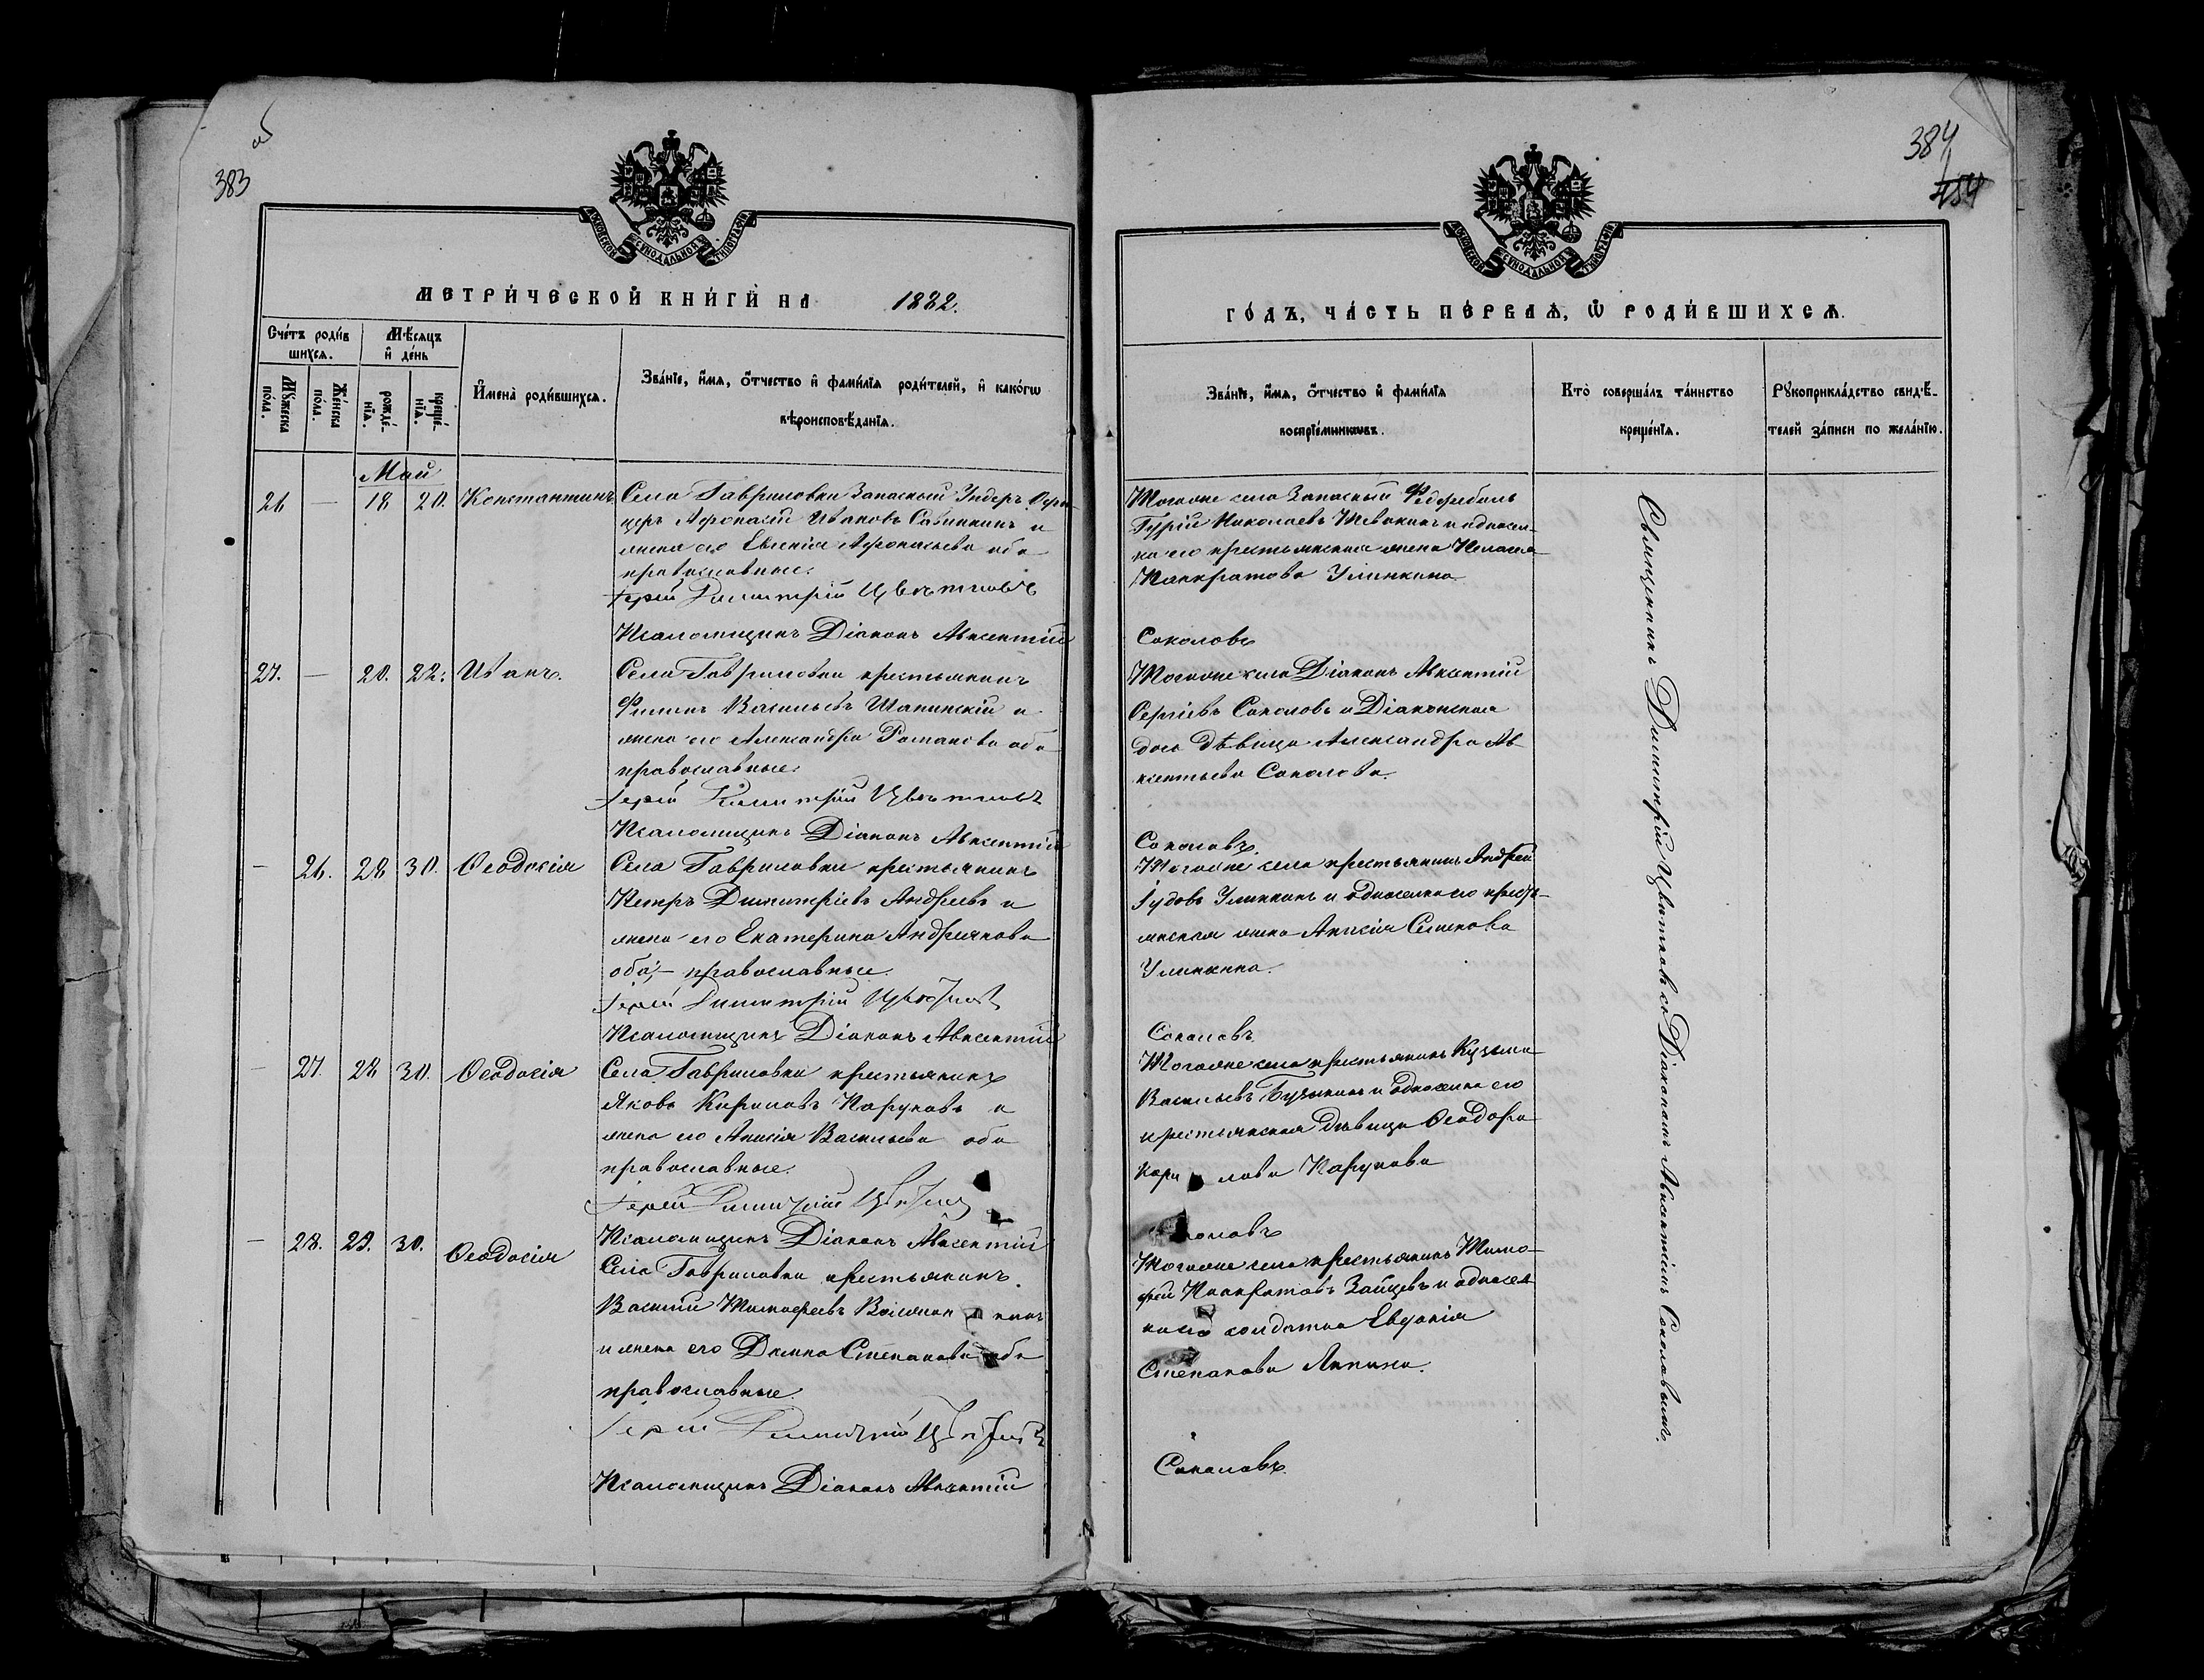 об
383
МОСКОВСКОЙ СѴНОДАЛЬНОЙ ТИПОГРАФІИ
МЕТРИ́ЧЕСКОЙ КНИ́ГИ НА 1882.
Сче́тъ роди́в
шихсѧ.
Мѣ́сѧцъ
и҆ де́нь
Мꙋ́жеска
по́ла.
Же́нска
по́ла.
рожде́-
нїѧ.
креще́-
нїѧ.
И҆мена̀ роди́вшихсѧ.
Зва́нїе, и҆́мѧ, ѻ҆́тчество и҆ фами́лїѧ роди́телей, и҆ како́гѡ
вѣроисповѣ́данїѧ.
Май
26 — 18 20. Константинъ
Села Гавриловки Запасный Ундеръ Офи-
церъ Афонасий Ивановъ Савинкинъ и
жена его Евгенія Афонасьева оба
православные.
Іерей Димитрій Цвѣтковъ
Псаломщикъ Діаконъ Авксентій
27. — 20. 22. Иванъ.
Села Гавриловки крестьянинъ
Филипъ Васильевъ Шапинскій и
жена его Александра Романова оба
православные.
Іерей Димитрій Цвѣтковъ
Псаломщикъ Діаконъ Авксентій
— 26. 28 30. Ѳеодосія
Села Гавриловки крестьянинъ
Петръ Димитріевъ Андреевъ и
жена его Екатерина Андреянова
оба,— православные
Іерей Димитрій Цвѣтковъ
Псаломщикъ Діаконъ Авксентій
— 27. 28 30. Ѳеодосія
Села Гавриловки крестьянинъ
Яковъ Кириловъ Паруновъ и
жена его Анисія Васильева оба
православные.
Іерей Димитрій Цвѣтковъ
Псаломщикъ Діаконъ Авксентій
— 28. 29. 30. Ѳеодосія
Села Гавриловки крестьянинъ.
Василий Тимофеевъ
и жена его Домна Степанова оба
православные.
Іерей Димитрій Цвѣтковъ
Псаломщикъ Діаконъ Авксентій
384
454
МОСКОВСКОЙ СѴНОДАЛЬНОЙ ТИПОГРАФІИ
ГО́ДЪ, ЧА́СТЬ ПЕ́РВАѦ, Ѡ҆ РОДИ́ВШИХСѦ.
Зва́нїе, и҆́мѧ, ѻ҆́тчество и҆ фами́лїѧ
воспрїе́мникѡвъ.
Кто̀ соверша́лъ та́инство
креще́нїѧ.
Рꙋкоприкла́дство свидѣ́-
телей за́писи по жела́нїю.
Тогоже села Запасный Фельдфебель
Гурій Николаевъ Шевакинъ и односел-
ка его крестьянская жена Пелагея
Панкратова Улинкина
Соколовъ
Тогоже села Діаконъ Авксентій
Сергіевъ Соколовъ и Діаконская
дочь Дѣвица Александра Ав-
ксентьева Соколова
Соколовъ.
Тогоже села крестьянинъ Андрей
Іудовъ Улинкинъ и односелка его кресть-
янская жена Анисія Семенова
Улинкина.
Соколовъ
Тогоже села крестьянинъ Кузьма
Васильевъ Бузыкинъ и односелка его
крестьянская дѣвица Ѳеодора
Кирилова Парунова
Соколовъ
Тогоже села крестьянинъ Тимо-
фей Панкратовъ Зайцевъ и односел
ка его солдатка Евдокія
Степанова Лапина.
Соколовъ.
Священникъ Димитрій Цвѣтковъ съ Діакономъ Авксентіемъ Соколовымъ.